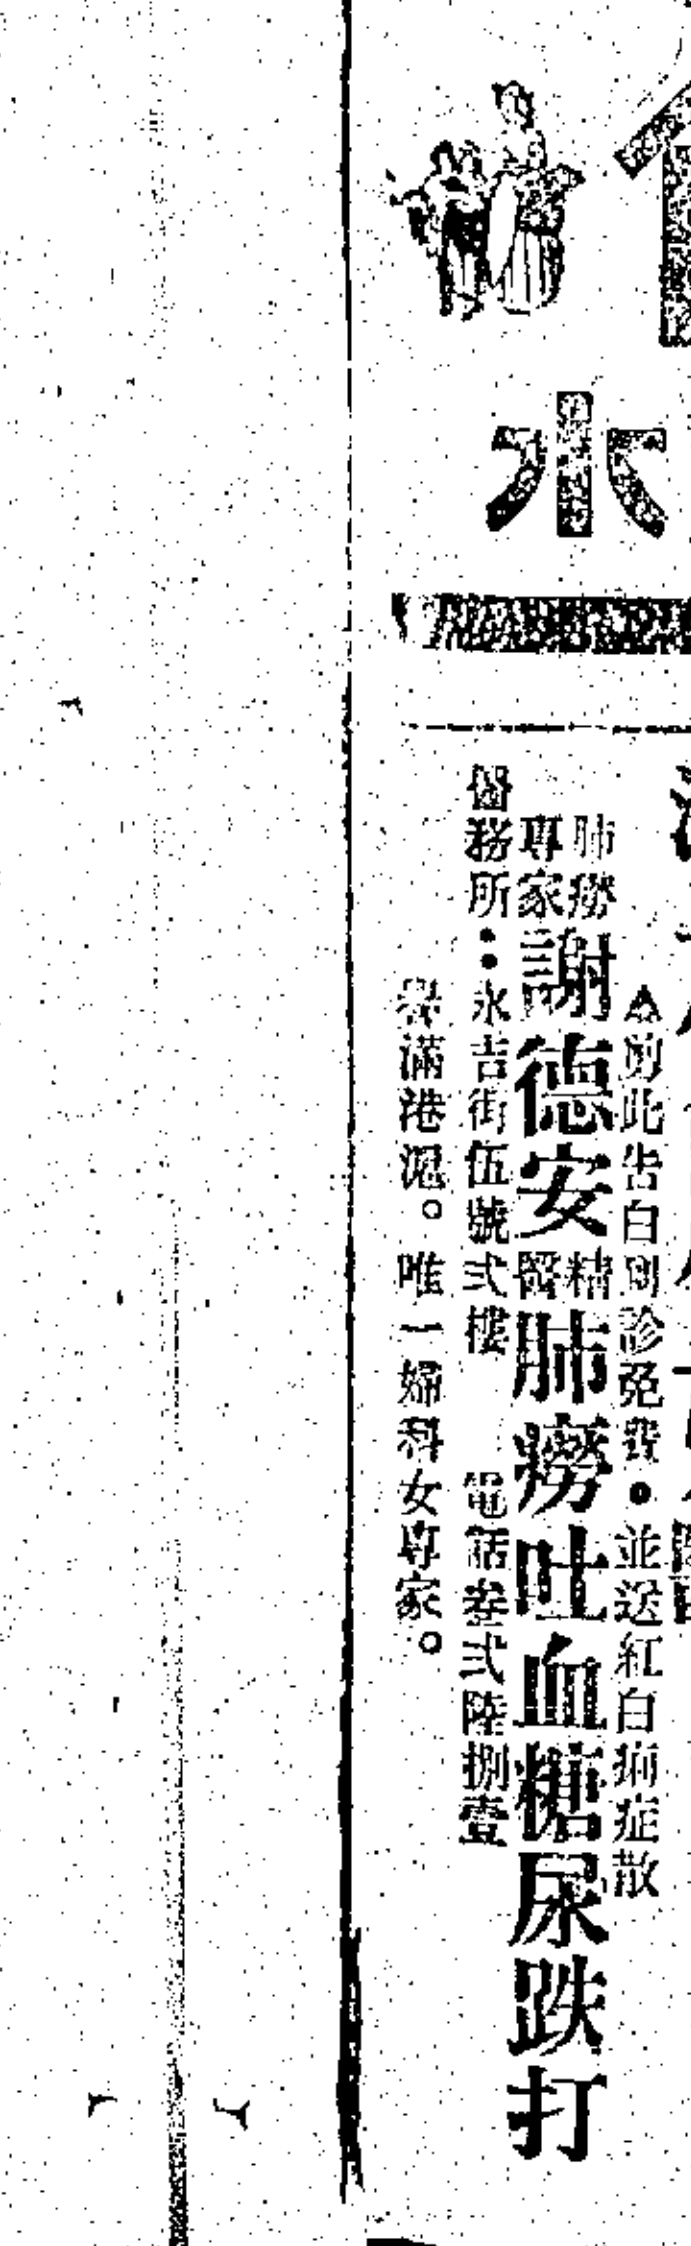 水
▲剪此告白到診免費•並送紅白痢症散
肺癆專家謝德安精醫肺癆吐血糖尿跌打
醫務所：永吉街伍號弍樓　電話叁弍陸捌壹
譽滿港澠。唯一婦科女專家。